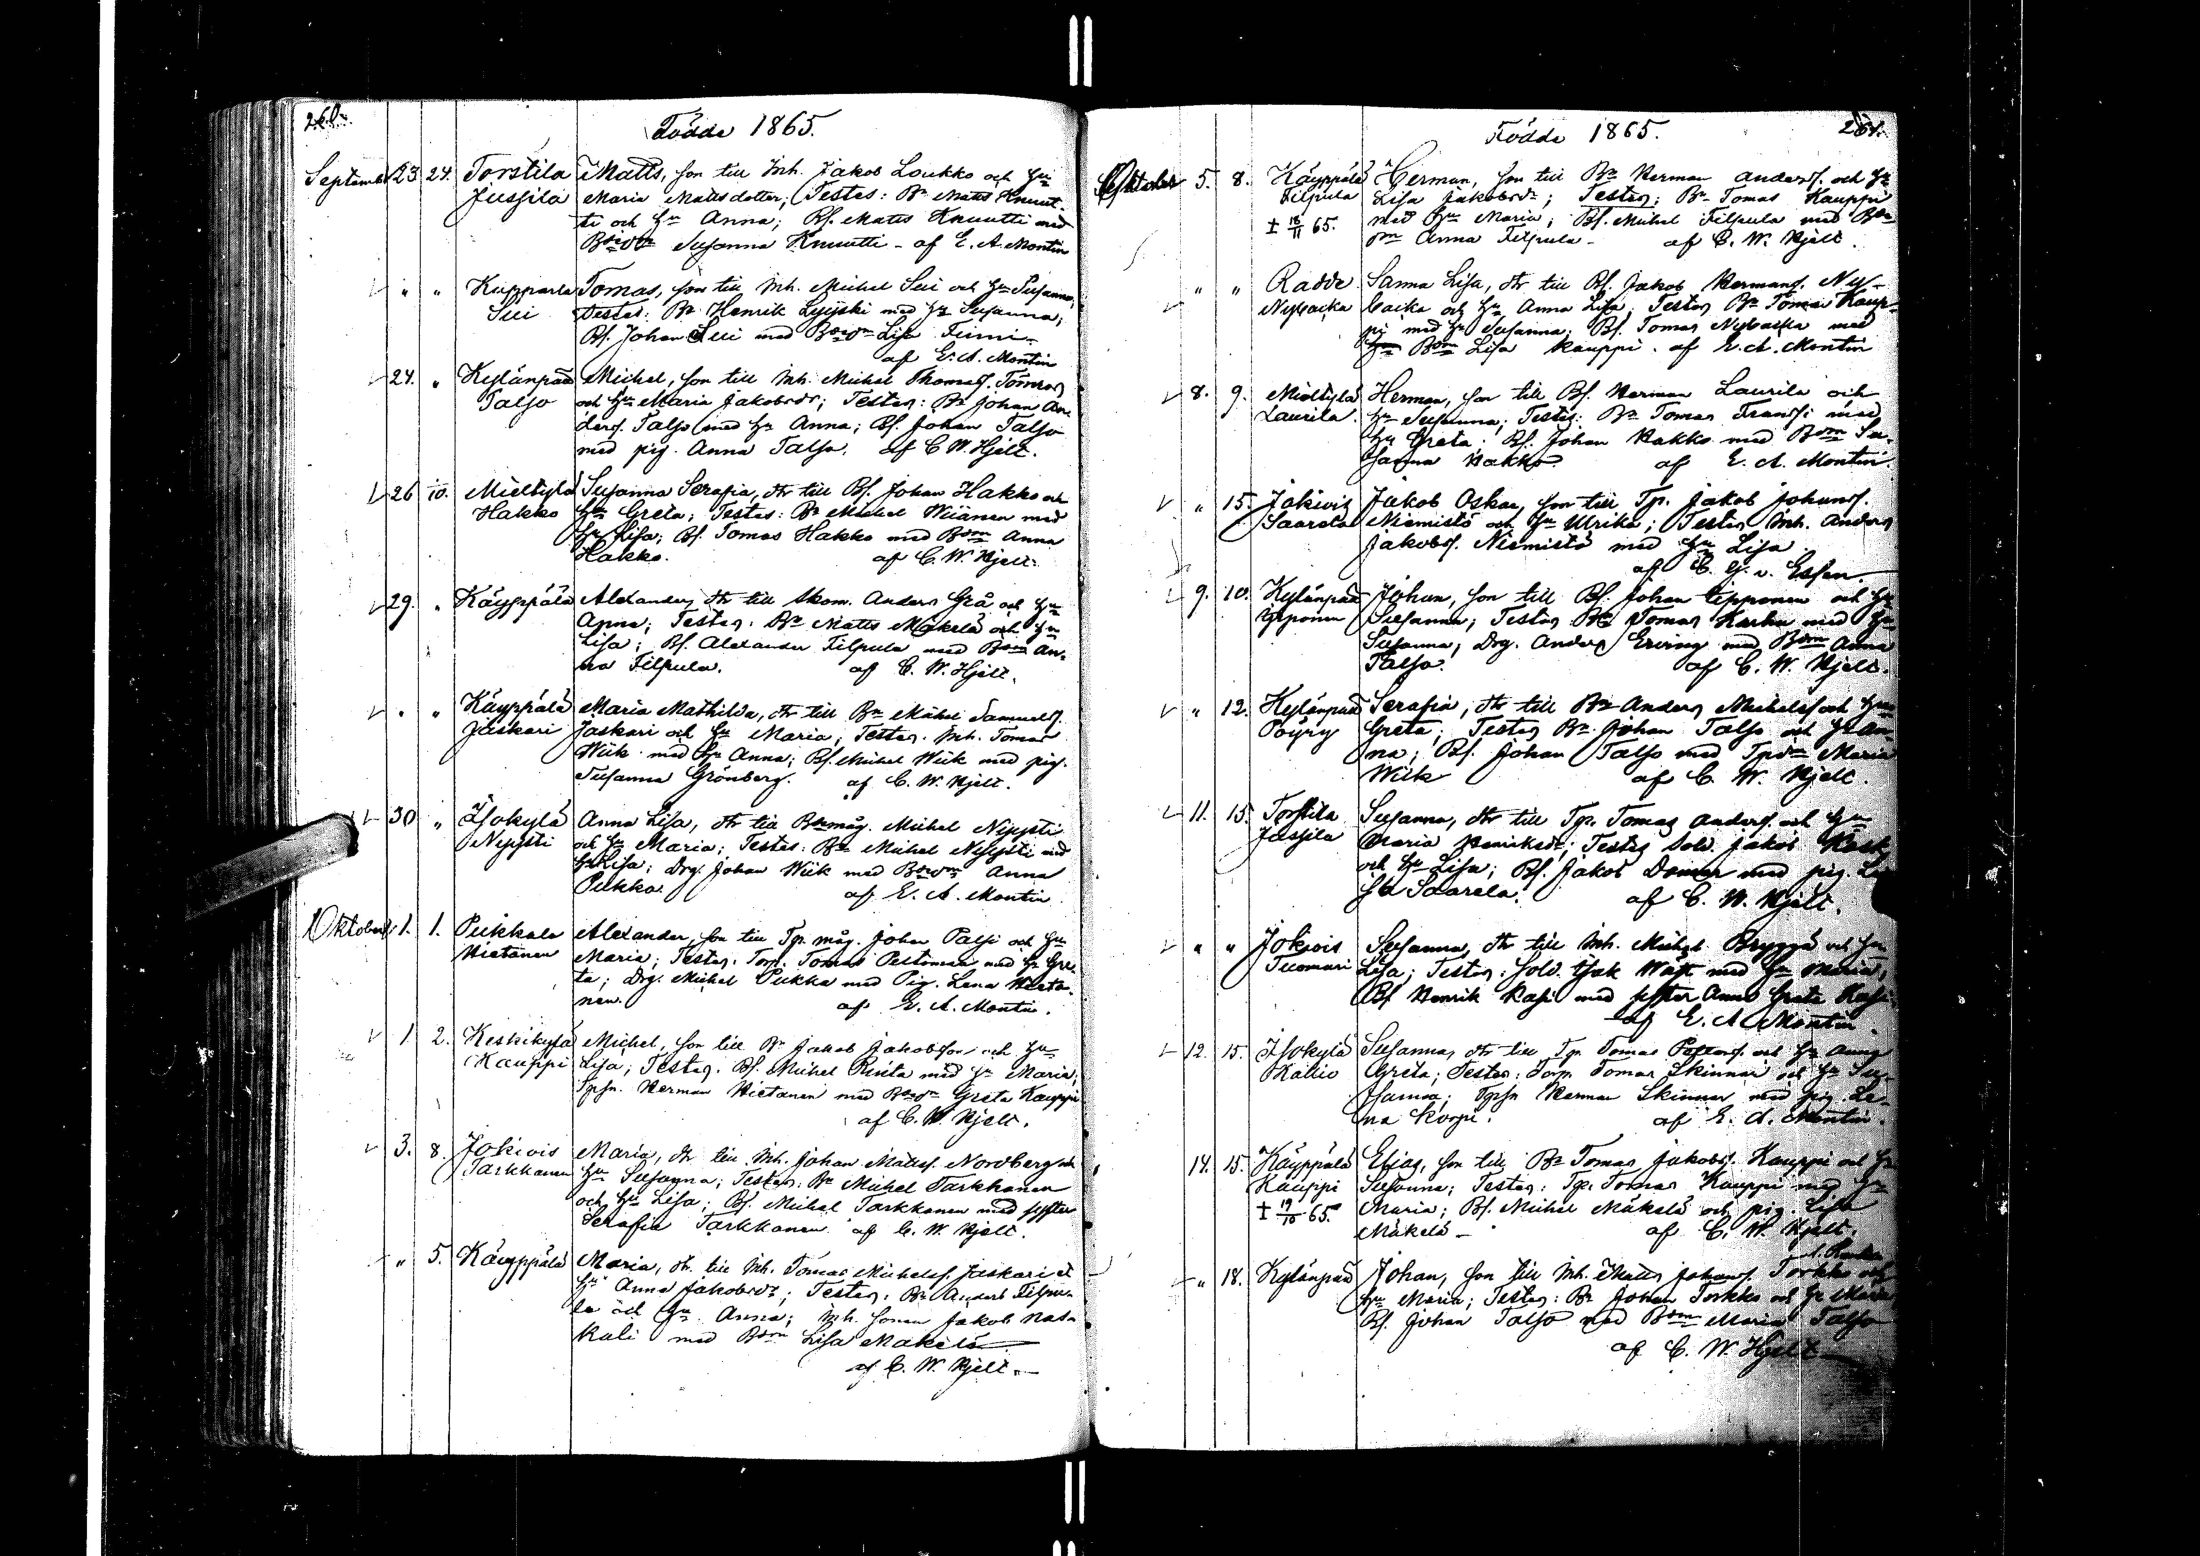 260.
Födde 1865.
September 23 24. Torstila Matts, son till Inh. Jakob Loukko och Hu
Jussila Maria Mattsdotter; Testes: Bn Matts Knuut-
ti och Hu Anna; Bs. Matts Knuutti med
Susanna Knuutti - af E. A. Montin
" " Kupparla Tomas, son till Inh. Michel Sui och Hu Susanna;
Sui Testes: Bn Henrik med Hu Susanna;
Bs. Johan Sui med Lisa
af E. A. Montin
24. " Kylänpää Michel, son till Inh. Michel Thomass.
Talso och Hu Maria Jakobsdr; Testes: Bn Johan An-
derss. Talso med Hu Anna; Bs. Johan Talso
med pig. Anna Talso. af C. W. Hjelt.
26 10. Mieltylä Susanna Serafia, dtr till Bs. Johan Hakko och
Hakko Hu Greta; Testes: Bn Michel Wiiänen med
Hu Lisa; Bs. Tomas Hakko med Bdm Anna
Hakko. af C. W. Hjelt.
29. " Käyppälä Alexander, dtr till Skom. Anders Grå och Hu
Anna; Testes: Bn Matts Mäkelä och Hu
Lisa; Bs. Alexander Filpula med Bdm An-
na Filpula. af C. W. Hjelt.
" " Käyppälä Maria Mathilda, dtr till Bn Michel Samuelss.
Jäskari Jäskari och Hu Maria; Testes: Inh. Tomas
Wiik med Hu Anna; Bs. Michel Wiik med pig.
Susanna Grönberg. af C. W. Hjelt.
30 " Isokylä Anna Lisa, dtr till Bnmåg. Michel Nipysti
Nipysti och Hu Maria; Testes: Bn Michel Nipysti med
Hu Lisa; Drg. Johan Wiik med Anna
Pukka. af E. A. Montin
Oktober 1. 1. Peikkala Alexander, son till Tp. måg. Johan Palsi och Hu
Hietanen Maria; Testes: Torp. Tomas med Hu Gre-
ta; Drg. Michel Pukka med Pig. Lena Hieta-
nen. af E. A. Montin.
1 2. Keskikylä Michel, son till Bn Jakob Jakobsson och Hu
Kauppi Lisa; Testes: Bs. Michel Rinta med Hu Maria;
Tpsn. Herman Hietanen med Greta Kauppi
af C. W. Hjelt.
3. 8. Jokivis Maria, dtr till Inh. Johan Matss. Nordberg och
Tarkkanen Hu Susanna; Testes: Bn Michel Tarkkanen
och Hu Lisa; Bs. Michel Tarkkanen med syster
Serafia Tarkkanen. af C. W. Hjelt.
" 5. Käyppälä Maria, dtr till Inh. Tomas Michelss. Jäskari och
Hu Anna Jakobsdr; Testes: Bn Anders Filpu-
la och Hu Anna; Inh. sonen Jakob Nas-
kali med Bdm Lisa Mäkelä
af C. W. Hjelt.
Födde 1865. 261.
Oktober 5. 8. Käyppälä Herman, son till Bn Herman Anderss. och Hu
Filpula Lisa Jakobsdr; Testes: Bn Tomas Kauppi
± 18/11 65. med Hu Maria; Bs. Michel Filpula med
Anna Filpula - af C. W. Hjelt.
" " Radde Sanna Lisa, dtr till Bs. Jakob Hermans. Ny-
Nybacka backa och Hu Anna Lisa; Testes Bn Tomas Kaup-
pi med Hu Susanna; Bs. Tomas Nybacka med
Bdm Lisa Kauppi. af E. A. Montin
8. 9. Mieltylä Herman, son till Bs. Herman Laurila och
Laurila. Hu Susanna; Testes: Bn Tomas Fransi med
Hu Greta; Bs. Johan Hakko med Bdm Su-
sanna Hakko. af E. A. Montin.
" 15. Jokivis Jakob Oskar, son till Tp. Jakob Johanss.
Saarela Niemistö och Hu Ulrika; Testes Inh. Anders
Jakobs. Niemistö med Hu Lisa
af C. G. v. Essen.
9. 10. Kylänpää Johan, son till Bs. Johan Ypponen och Hu
Ypponen Susanna; Testes Bn Tomas Karhu med Hu
Susanna; Drg. Anders Erving med Bdm Anna
Talso. af C. W. Hjelt.
" 12. Kylänpää Serafia, dtr till Bn Anders Michelss. och Hu
Pöyry Greta; Testes Bn Johan Talso och Hu An-
na; Bs. Johan Talso med Maria
Wiik af C. W. Hjelt.
11. 15. Torstila Susanna, dtr till Tp. Tomas Anderss. och Hu
Jussila Maria Henriksdr; Testes Sold. Jakob Rask
och Hu Lisa; Bs. Jakob med pig.
Saarela. af C. W. Hjelt.
" " Jokivis Susanna, dtr till Inh. Michel Bryggä och Hu
Tuomari Lisa; Testes: Sold. Isak med Hu Maria;
Bs Henrik Kasi med syster Anna Greta Kasi
af E. A. Montin.
12. 15. Isokylä Susanna, dtr till Tp. Tomas och Hu Anna
Kallio Greta; Testes: Torp. Tomas Skinnar och Hu Su-
sanna; Tpsn Herman Skinnar med pig. Le-
na Korpi. af E. A. Montin.
14. 15. Käyppälä Elias, son till Bn Tomas Jakobs. Kauppi och Hu
Kauppi Susanna; Testes: Tp. Tomas Kauppi med Hu
± 19/10 65. Maria; Bs. Michel Mäkelä och pig. Lisa
Mäkelä - af C. W. Hjelt.
" 18. Kylänpää Johan, son till Inh. Matts Johanss. Torkko och
Hu Maria; Testes: Bn Johan Torkko och Hu Maria;
Bs. Johan Talso med Bdm Maria Talso
af C. W. Hjelt